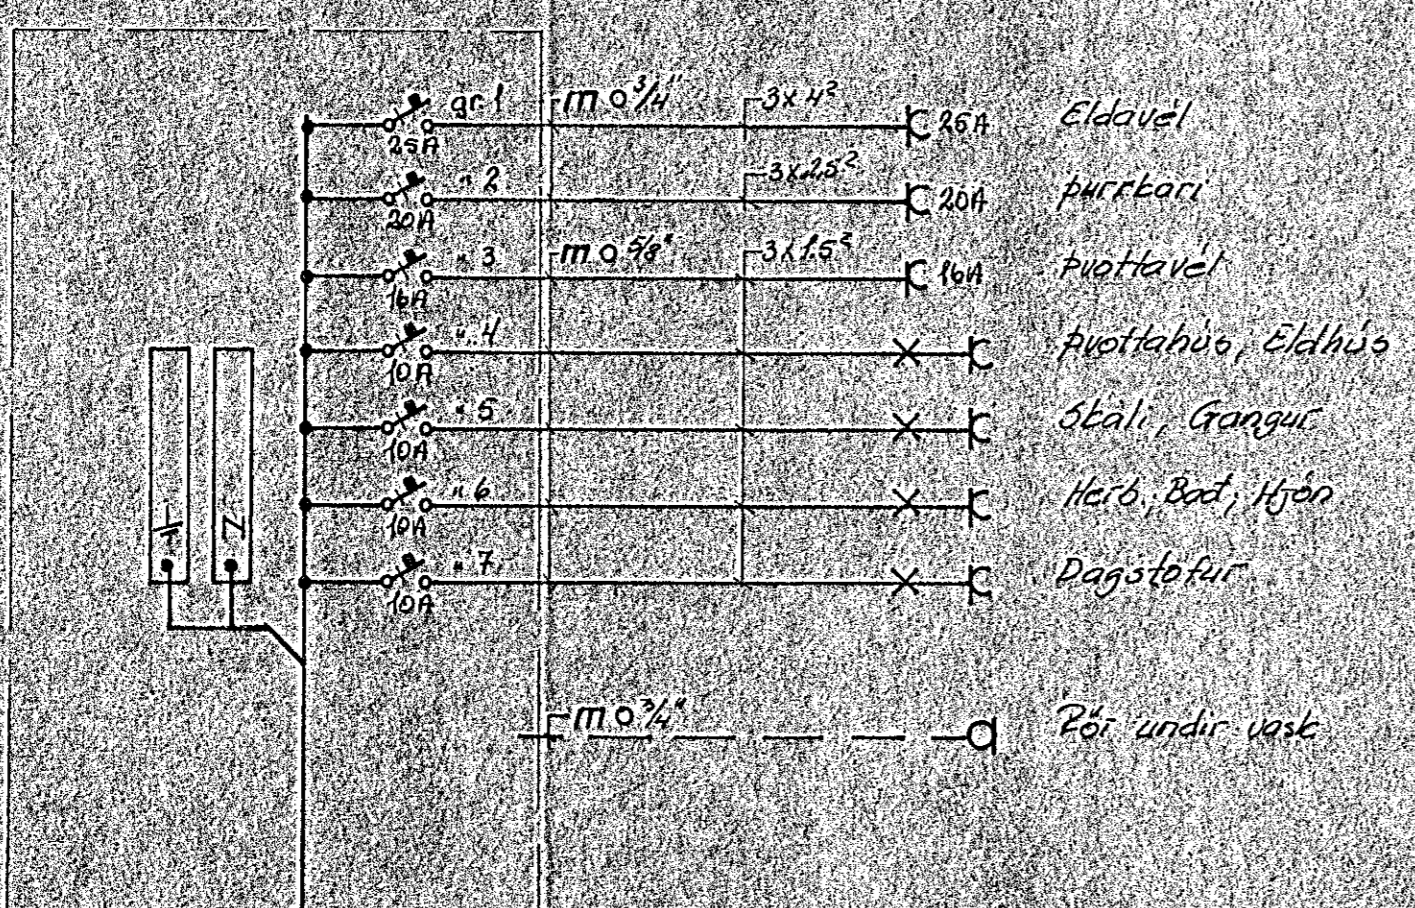 gr. 1 mo 3/4" 3x4² 25A Eldavél
25A
" 2 3x2.5² 20A Þurrkari
20A
" 3 mo 5/8" 3x1.5² 16A Þvottavél
16A
" 4 Þvottahús, Eldhús
10A
" 5 Skáli, Gangur
10A
" 6 Herb, Bað, Hjón
10A
" 7 Dagstofur
10A
N
mo 3/4" Rör undir vask